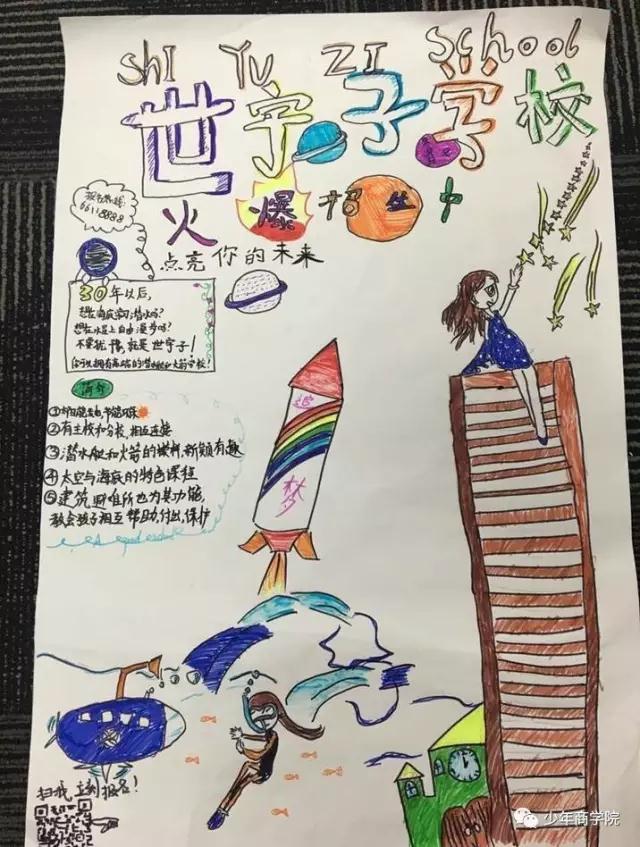 SHI YU ZI School
世宇子学校
火爆招生中
点亮你的未来
报名热线:
66118888
30年以后,
想在海底潜水吗?
想在水星上自由漫步吗?
不要犹豫,就是世宇子!
简介
②有主校和分校,相互连接
③潜水艇和火箭的模样,新颖有趣
④太空与海底的特色课程
⑤建筑避难所也为其功能,
教会孩子相互帮助,付出,保护
追
梦
扫我,立刻报名!
少年商学院